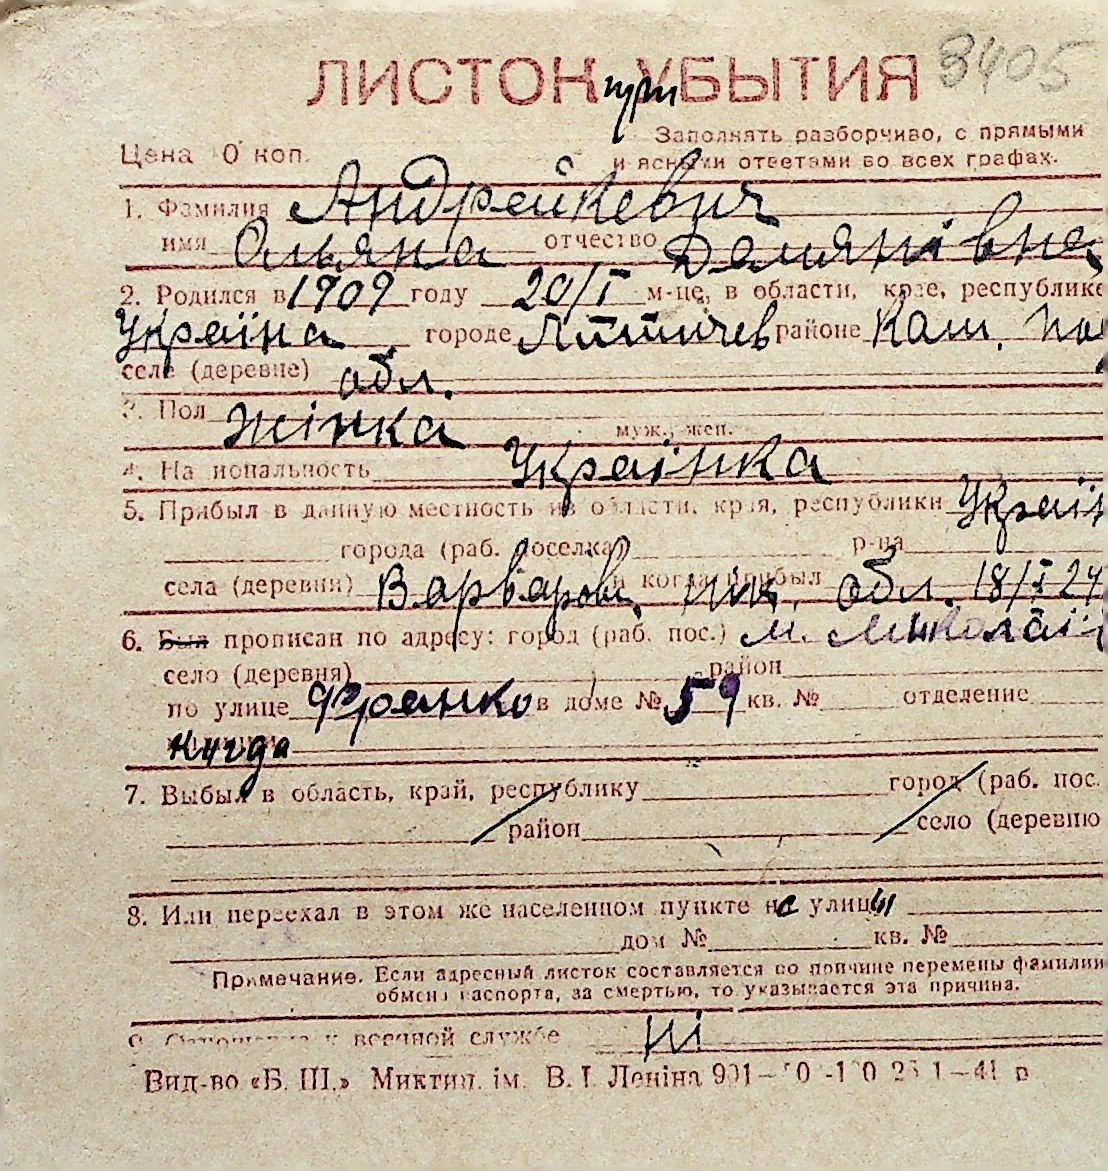 ЛИСТОК УБЫТИЯ 3405
при
Цена 0 коп.
Заполнять разборчиво, с прямыми
и ясными ответами во всех графах.
1. Фамилия Андрейкевич
имя Ольяна отчество Демянівна
2. Родился в 1909 году 20/I м-це, в области, крае, республике
Україна городе Літичев районе Кам. Под
селе (деревне) обл.
3. Пол жінка
муж., жен.
4. Национальность Українка
5. Прибыл в данную местность из области, края, республики Украї
города (раб. поселка) р-на
села (деревни) Варваровк. Мик. обл. и когда прибыл 18/I 24
6. Был прописан по адресу: город (раб. пос.) м. Миколаїв
село (деревня) район
по улице Франко в доме № 59 кв. № отделение
милиции
куда
7. Выбыл в область, край, республику город (раб. пос.
район село (деревню
8. Или переехал в этом же населенном пункте с улицы
дом № кв. №
Примечание. Если адресный листок составляется по причине перемены фамилии
обмена паспорта, за смертью, то указывается эта причина.
9. Отношение к военной службе Ні
Вид-во «Б. Ш.» Миктип. ім. В. І. Леніна